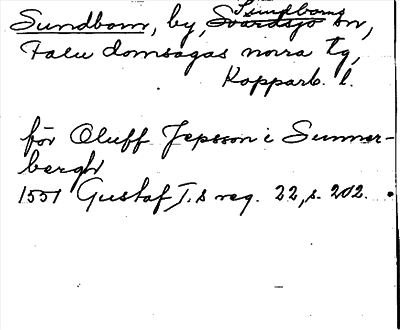 Sundborn, by, Sundborns
Svärdsjö sn,
Falu domsagas norra tg,
Kopparb. l.
för Oluff Jepsson i Sunner-
bergh
1551 Gustaf I.s reg. 22, s. 202.